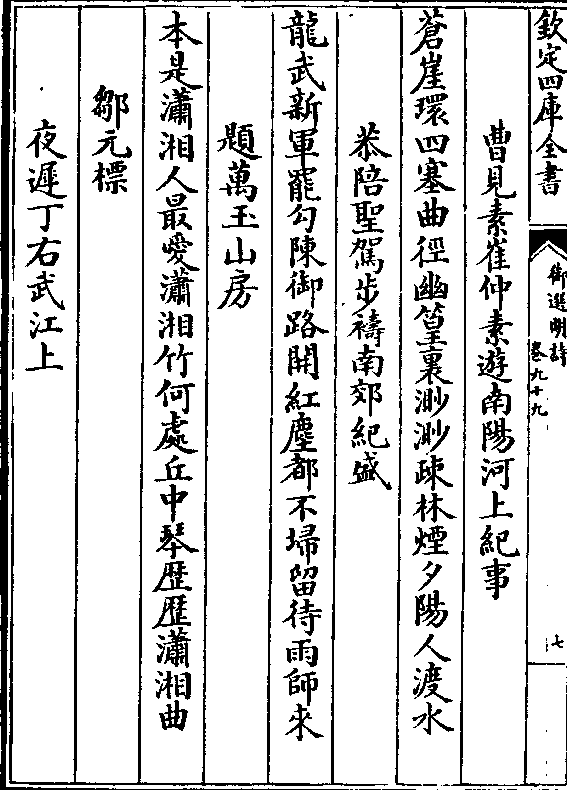 欽定四庫全書
御選明詩
卷九十九
七
曹見素崔仲素遊南陽河上紀事
蒼崖環四塞曲徑幽篁裏渺渺疎林煙夕陽人渡水
恭陪聖駕步禱南郊紀盛
龍武新軍罷勾陳御路開紅塵都不埽留待雨師來
題萬玉山房
本是瀟湘人最愛瀟湘竹何處丘中琴歴歴瀟湘曲
鄒元標
夜遲丁右武江上